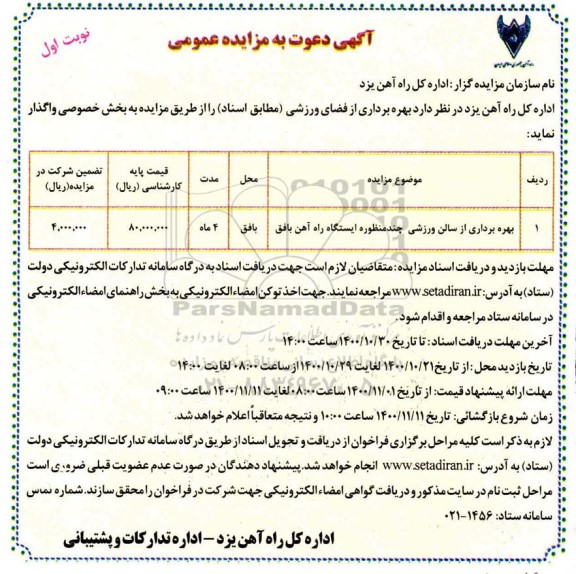 آگهی دعوت به مزایده عمومی
نوبت اول
نام سازمان مزایده گزار: اداره کل راه آهن یزد
اداره کل راه آهن یزد در نظر دارد بهره برداری از فضای ورزشی (مطابق اسناد) را از طریق مزایده به بخش خصوصی واگذار
نماید:
ردیف موضوع مزایده محل مدت قیمت پایه کارشناسی (ریال) تضمین شرکت در مزایده(ریال)
۱ بهره برداری از سالن ورزشی چندمنظوره ایستگاه راه آهن بافق بافق ۴ ماه ۸۰.۰۰۰.۰۰۰ ۴.۰۰۰.۰۰۰
مهلت بازدید و دریافت اسناد مزایده: متقاضیان لازم است جهت دریافت اسناد به درگاه سامانه تدارکات الکترونیکی دولت
(ستاد) به آدرس: www.setadiran.ir مراجعه نمایند. جهت اخذ توکن امضاء الکترونیکی به بخش راهنمای امضاء الکترونیکی
در سامانه ستاد مراجعه و اقدام شود.
آخرین مهلت دریافت اسناد: تا تاریخ ۱۴۰۰/۱۰/۳۰ ساعت ۱۴:۰۰
تاریخ بازدید محل: از تاریخ ۱۴۰۰/۱۰/۲۱ لغایت ۱۴۰۰/۱۰/۲۹ از ساعت ۰۸:۰۰ لغایت ۱۴:۰۰
مهلت ارائه پیشنهاد قیمت: از تاریخ ۱۴۰۰/۱۱/۰۱ ساعت ۰۸:۰۰ لغایت ۱۴۰۰/۱۱/۱۱ ساعت ۰۹:۰۰
زمان شروع بازگشائی: تاریخ ۱۴۰۰/۱۱/۱۱ ساعت ۱۰:۰۰ و نتیجه متعاقباً اعلام خواهد شد.
لازم به ذکر است کلیه مراحل برگزاری فراخوان از دریافت و تحویل اسناد از طریق درگاه سامانه تدارکات الکترونیکی دولت
(ستاد) به آدرس: www.setadiran.ir انجام خواهد شد. پیشنهاد دهندگان در صورت عدم عضویت قبلی ضروری است
مراحل ثبت نام در سایت مذکور و دریافت گواهی امضاء الکترونیکی جهت شرکت در فراخوان را محقق سازند. شماره تماس
سامانه ستاد: ۱۴۵۶-۰۲۱
اداره کل راه آهن یزد - اداره تدارکات و پشتیبانی
ParsNamadData